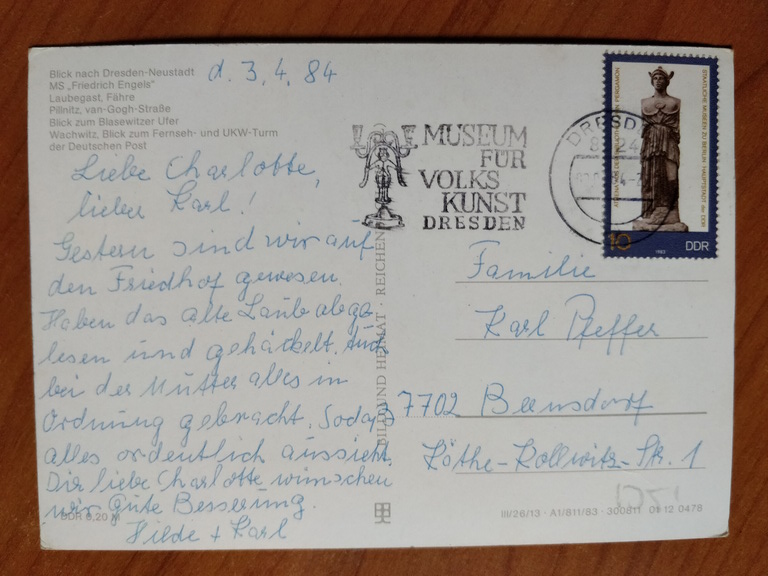 Blick nach Dresden-Neustadt
MS „Friedrich Engels"
Laubegast, Fähre
Pillnitz, van-Gogh-Straße
Blick zum Blasewitzer Ufer
Wachwitz, Blick zum Fernseh- und UKW-Turm
der Deutschen Post
d. 3.4.84
Liebe Charlotte,
lieber Karl!
Gestern sind wir auf
den Friedhof gewesen.
Haben das alte Laub abge-
lesen und gehäckelt. Auch
bei der Mutter alles in
Ordnung gebracht. Sodaß
alles ordentlich aussieht.
Dir liebe Charlotte wünschen
wir gute Besserung.
Hilde + Karl
DDR 0,20 M
BILD UND HEIMAT · REICHEN
MUSEUM
FÜR
VOLKS
KUNST
DRESDEN
DRESD
8 24
STAATLICHE MUSEEN ZU BERLIN · HAUPTSTADT der DDR
PERGAMON
10 1983 DDR
Familie
Karl Pfeffer
7702 Bernsdorf
Käthe-Kollwitz-Str. 1
III/26/13 · A1/811/83 · 300811 01 12 0478